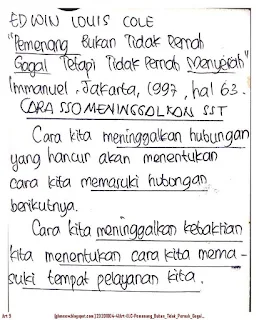 EDWIN LOUIS COLE
"Pemenang Bukan Tidak Pernah
Gagal Tetapi Tidak Pernah Menyerah"
Immanuel, Jakarta, 1997, hal 63.
CARA SSO MENINGGALKAN SST
Cara kita meninggalkan hubungan
yang hancur akan menentukan
cara kita memasuki hubongan
berikutnya.
Cara kita meninggalkan kebaktian
kita menentukan cara kita mema-
suki tempat pelayanan kita.